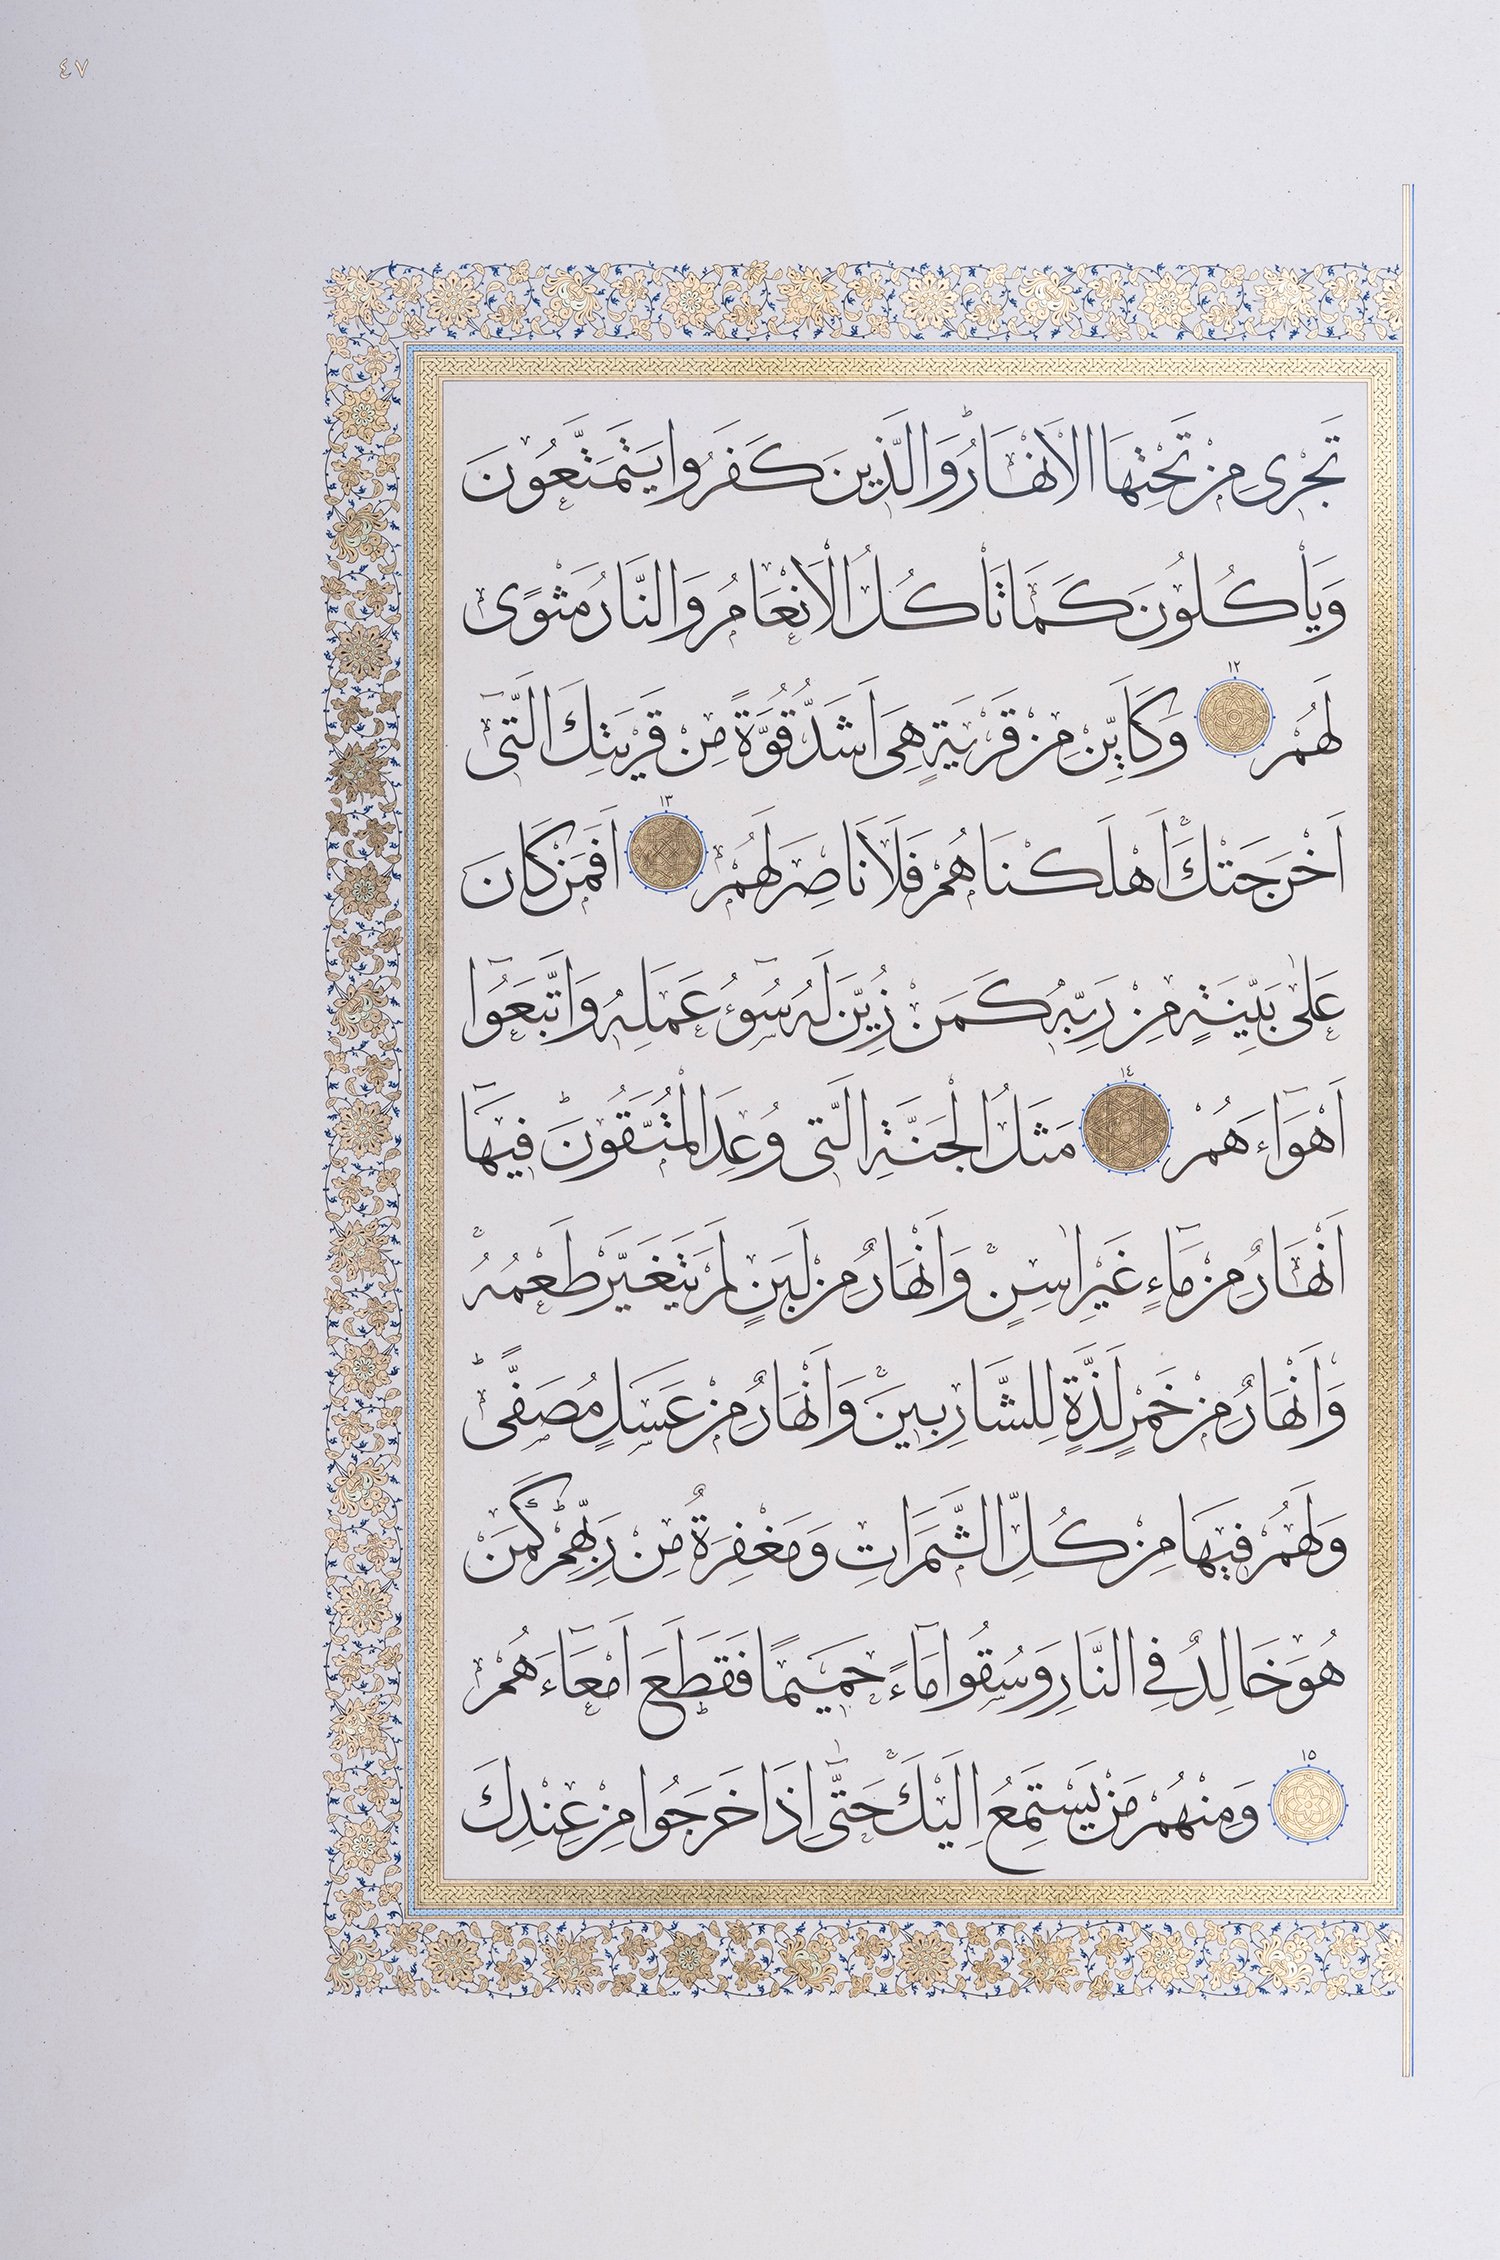 ٤٧
تَجْرٖى مِنْ تَحْتِهَا الْاَنْهَارُؕ وَالَّذٖينَ كَفَرُوا يَتَمَتَّعُونَ
وَيَأْكُلُونَ كَمَا تَأْكُلُ الْاَنْعَامُ وَالنَّارُ مَثْوًى
لَهُمْ ١٢ وَكَاَيِّنْ مِنْ قَرْيَةٍ هِىَ اَشَدُّ قُوَّةً مِنْ قَرْيَتِكَ الَّتٖٓى
اَخْرَجَتْكَۚ اَهْلَكْنَاهُمْ فَلَا نَاصِرَ لَهُمْ ١٣ اَفَمَنْ كَانَ
عَلٰى بَيِّنَةٍ مِنْ رَبِّهٖ كَمَنْ زُيِّنَ لَهُ سُٓوءُ عَمَلِهٖ وَاتَّبَعُٓوا
اَهْوَٓاءَهُمْ ١٤ مَثَلُ الْجَنَّةِ الَّتٖى وُعِدَ الْمُتَّقُونَؕ فٖيهَٓا
اَنْهَارٌ مِنْ مَٓاءٍ غَيْرِ اٰسِنٍۚ وَاَنْهَارٌ مِنْ لَبَنٍ لَمْ يَتَغَيَّرْ طَعْمُهُۚ
وَاَنْهَارٌ مِنْ خَمْرٍ لَذَّةٍ لِلشَّارِبٖينَۚ وَاَنْهَارٌ مِنْ عَسَلٍ مُصَفًّىؕ
وَلَهُمْ فٖيهَا مِنْ كُلِّ الثَّمَرَاتِ وَمَغْفِرَةٌ مِنْ رَبِّهِمْؕ كَمَنْ
هُوَ خَالِدٌ فِى النَّارِ وَسُقُوا مَٓاءً حَمٖيمًا فَقَطَّعَ اَمْعَٓاءَهُمْ
١٥ وَمِنْهُمْ مَنْ يَسْتَمِعُ اِلَيْكَۚ حَتّٰٓى اِذَا خَرَجُوا مِنْ عِنْدِكَ